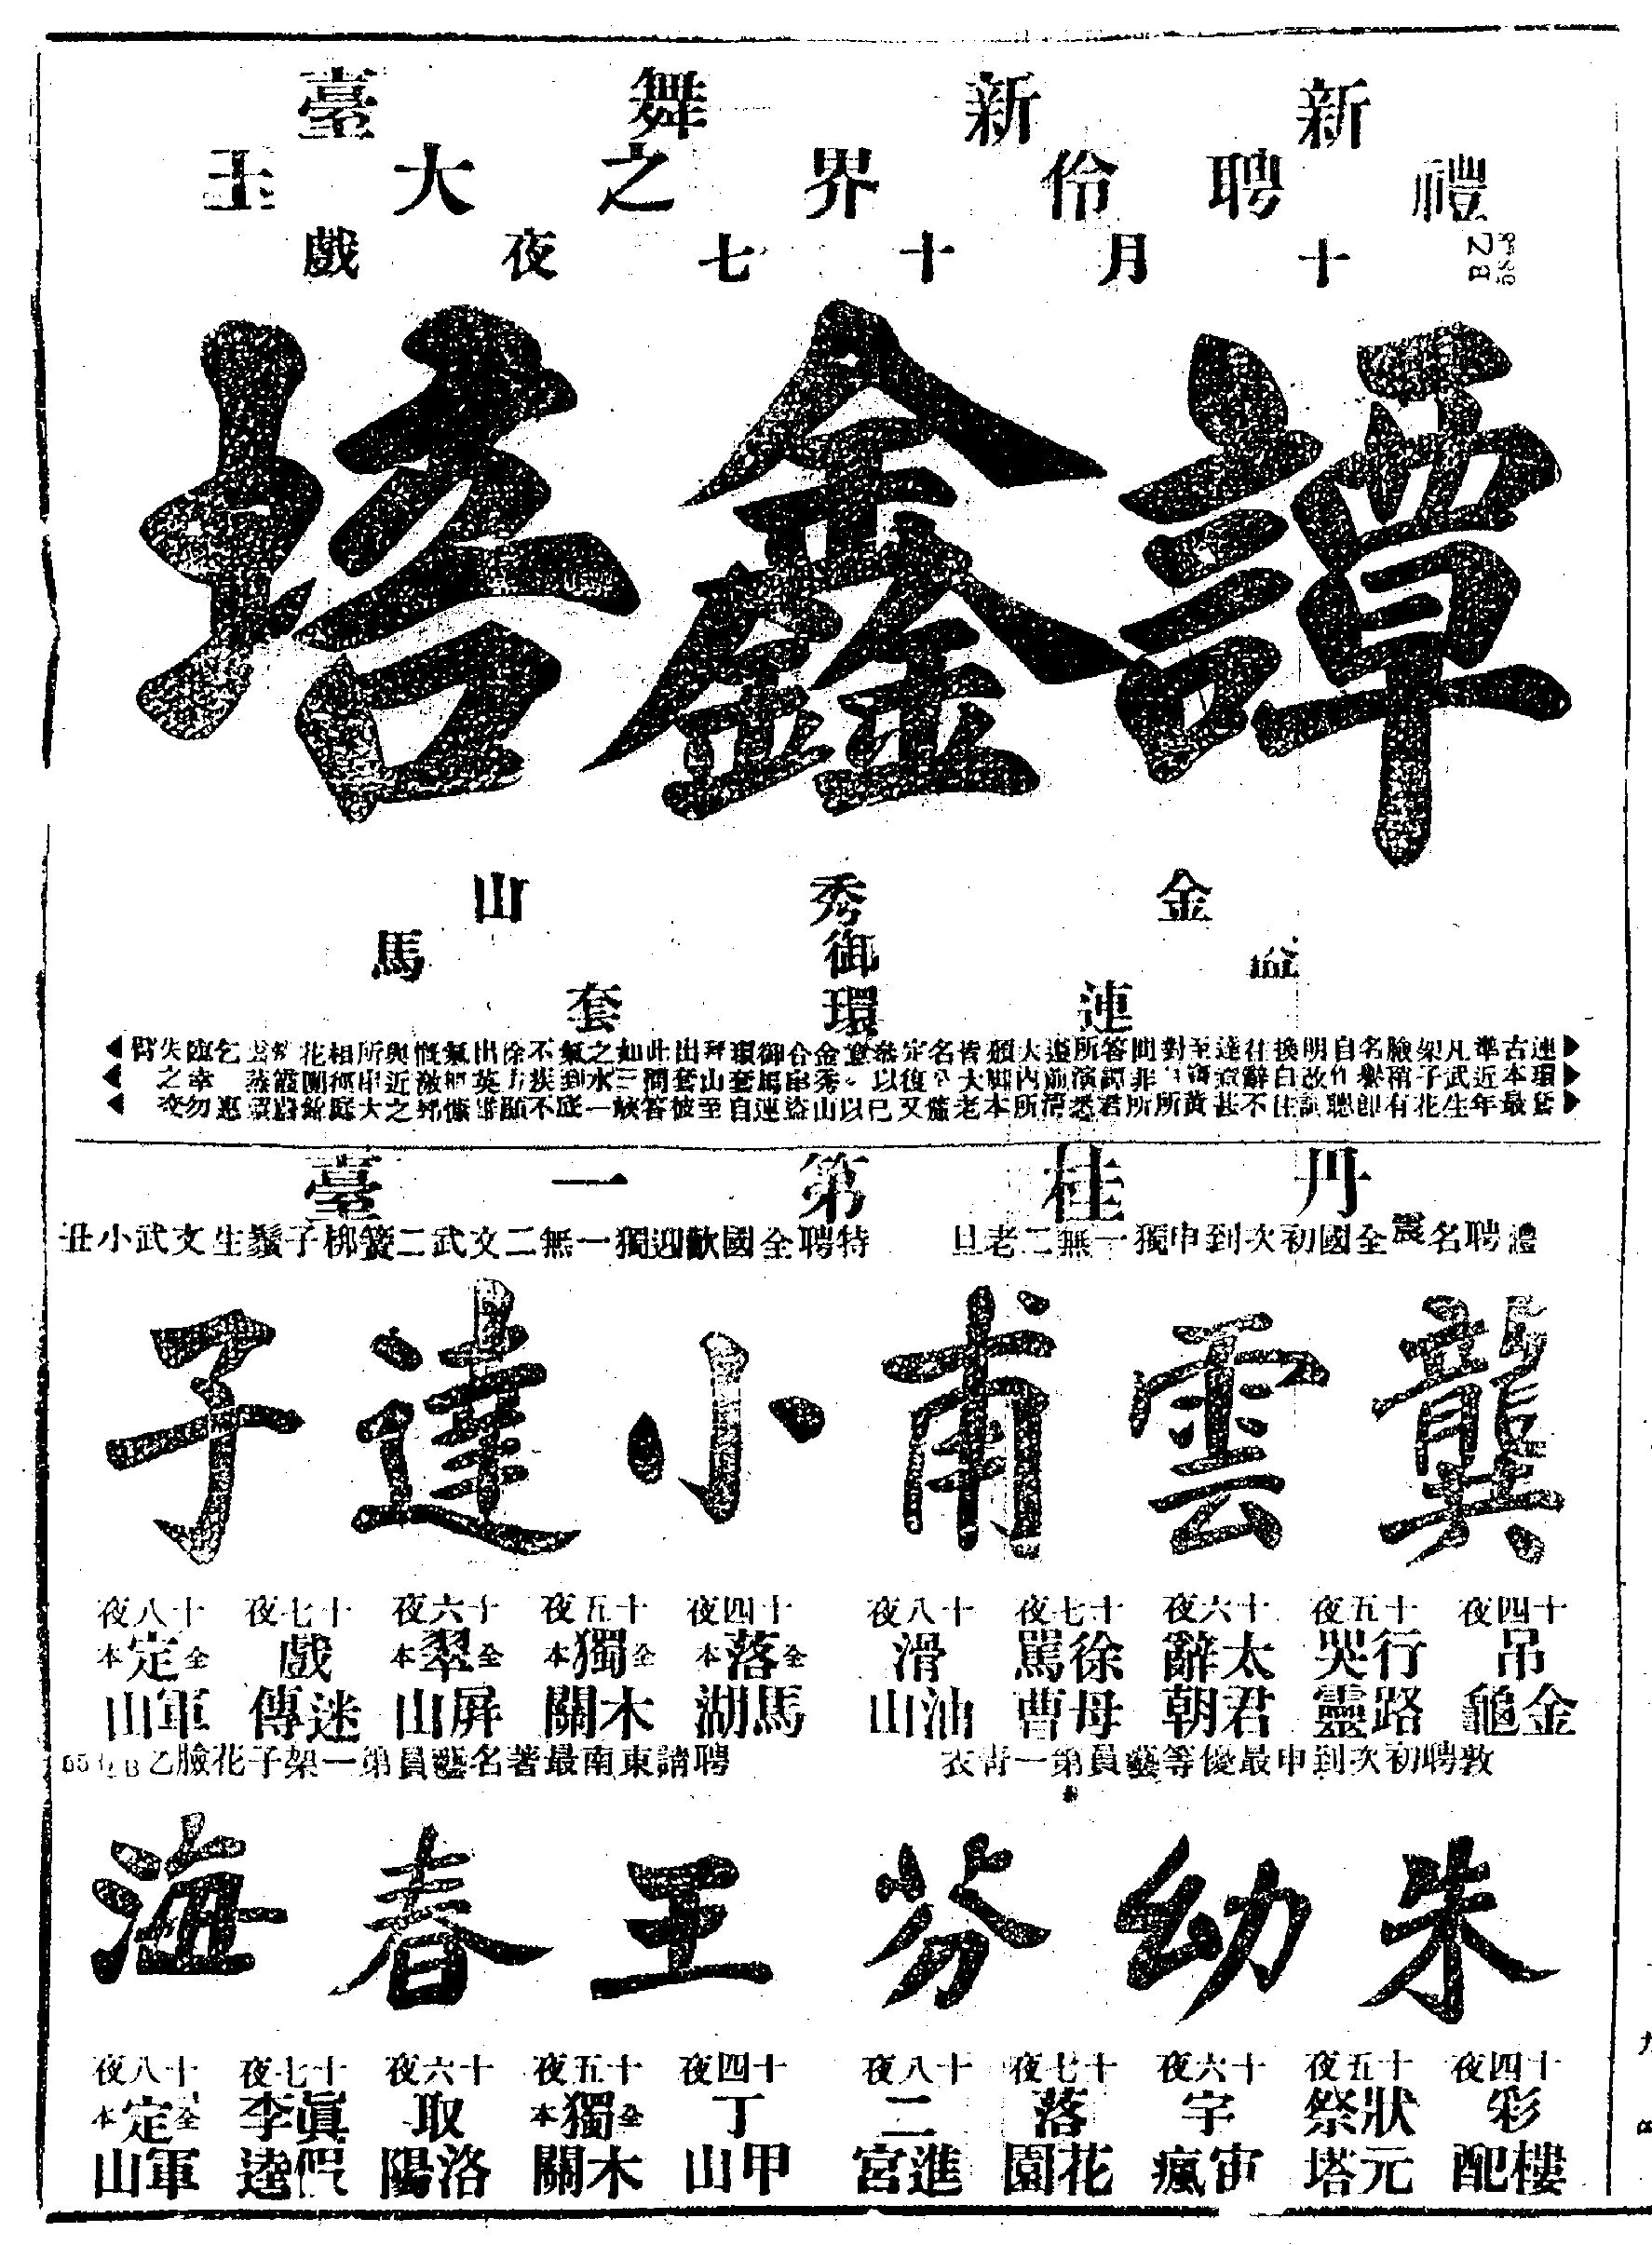 新新舞臺
禮聘伶界之大王
十月十七夜戲
譚鑫培
金秀山
盜御馬
連環套
連環套古本最準近年凡武生架子花臉稍有名譽即自作聰明改換白往往辭不達意甚至
丹桂第一臺
禮聘名震全國初次到申獨一無二老旦
特聘全國歡迎獨一無二文武二簧梆子鬚生文武小丑
龔雲甫
小達子
十四夜 吊金龜
十五夜 行路哭靈
十六夜 太君辭朝
十七夜 徐母罵曹
十八夜 滑油山
十四夜 全本落馬湖
十五夜 全本獨木關
十六夜 全本翠屏山
十七夜 戲迷傳
十八夜 全本定軍山
敦聘初次到申最優等藝員第一青衣
聘請東南最著名藝員第一架子花臉
朱幼芬
王春海
十四夜 彩樓配
十五夜 狀元祭塔
十六夜 宇宙瘋
十七夜 落花園
十八夜 二進宮
十四夜 丁甲山
十五夜 全本獨木關
十六夜 取洛陽
十七夜 眞假李逵
十八夜 全本定軍山